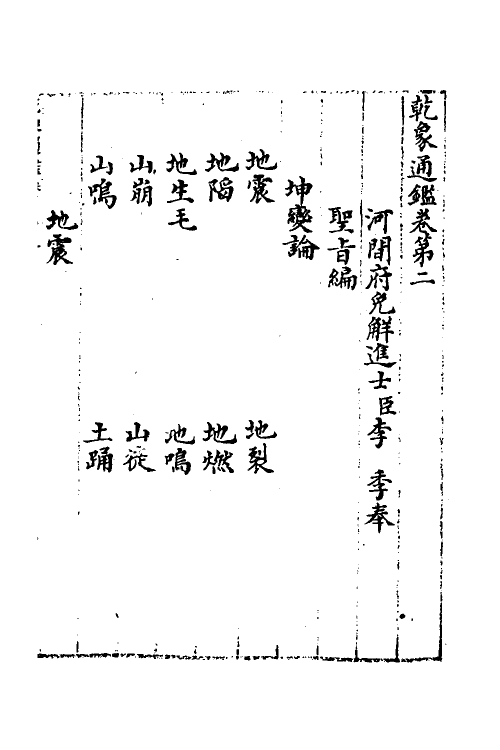 乾象通鑑卷第二
河間府免解進士臣李 季奉
聖旨編
坤變論
地震 地裂
地陷 地燃
地生毛 地鳴
山崩 山徙
山鳴 土踊
地震